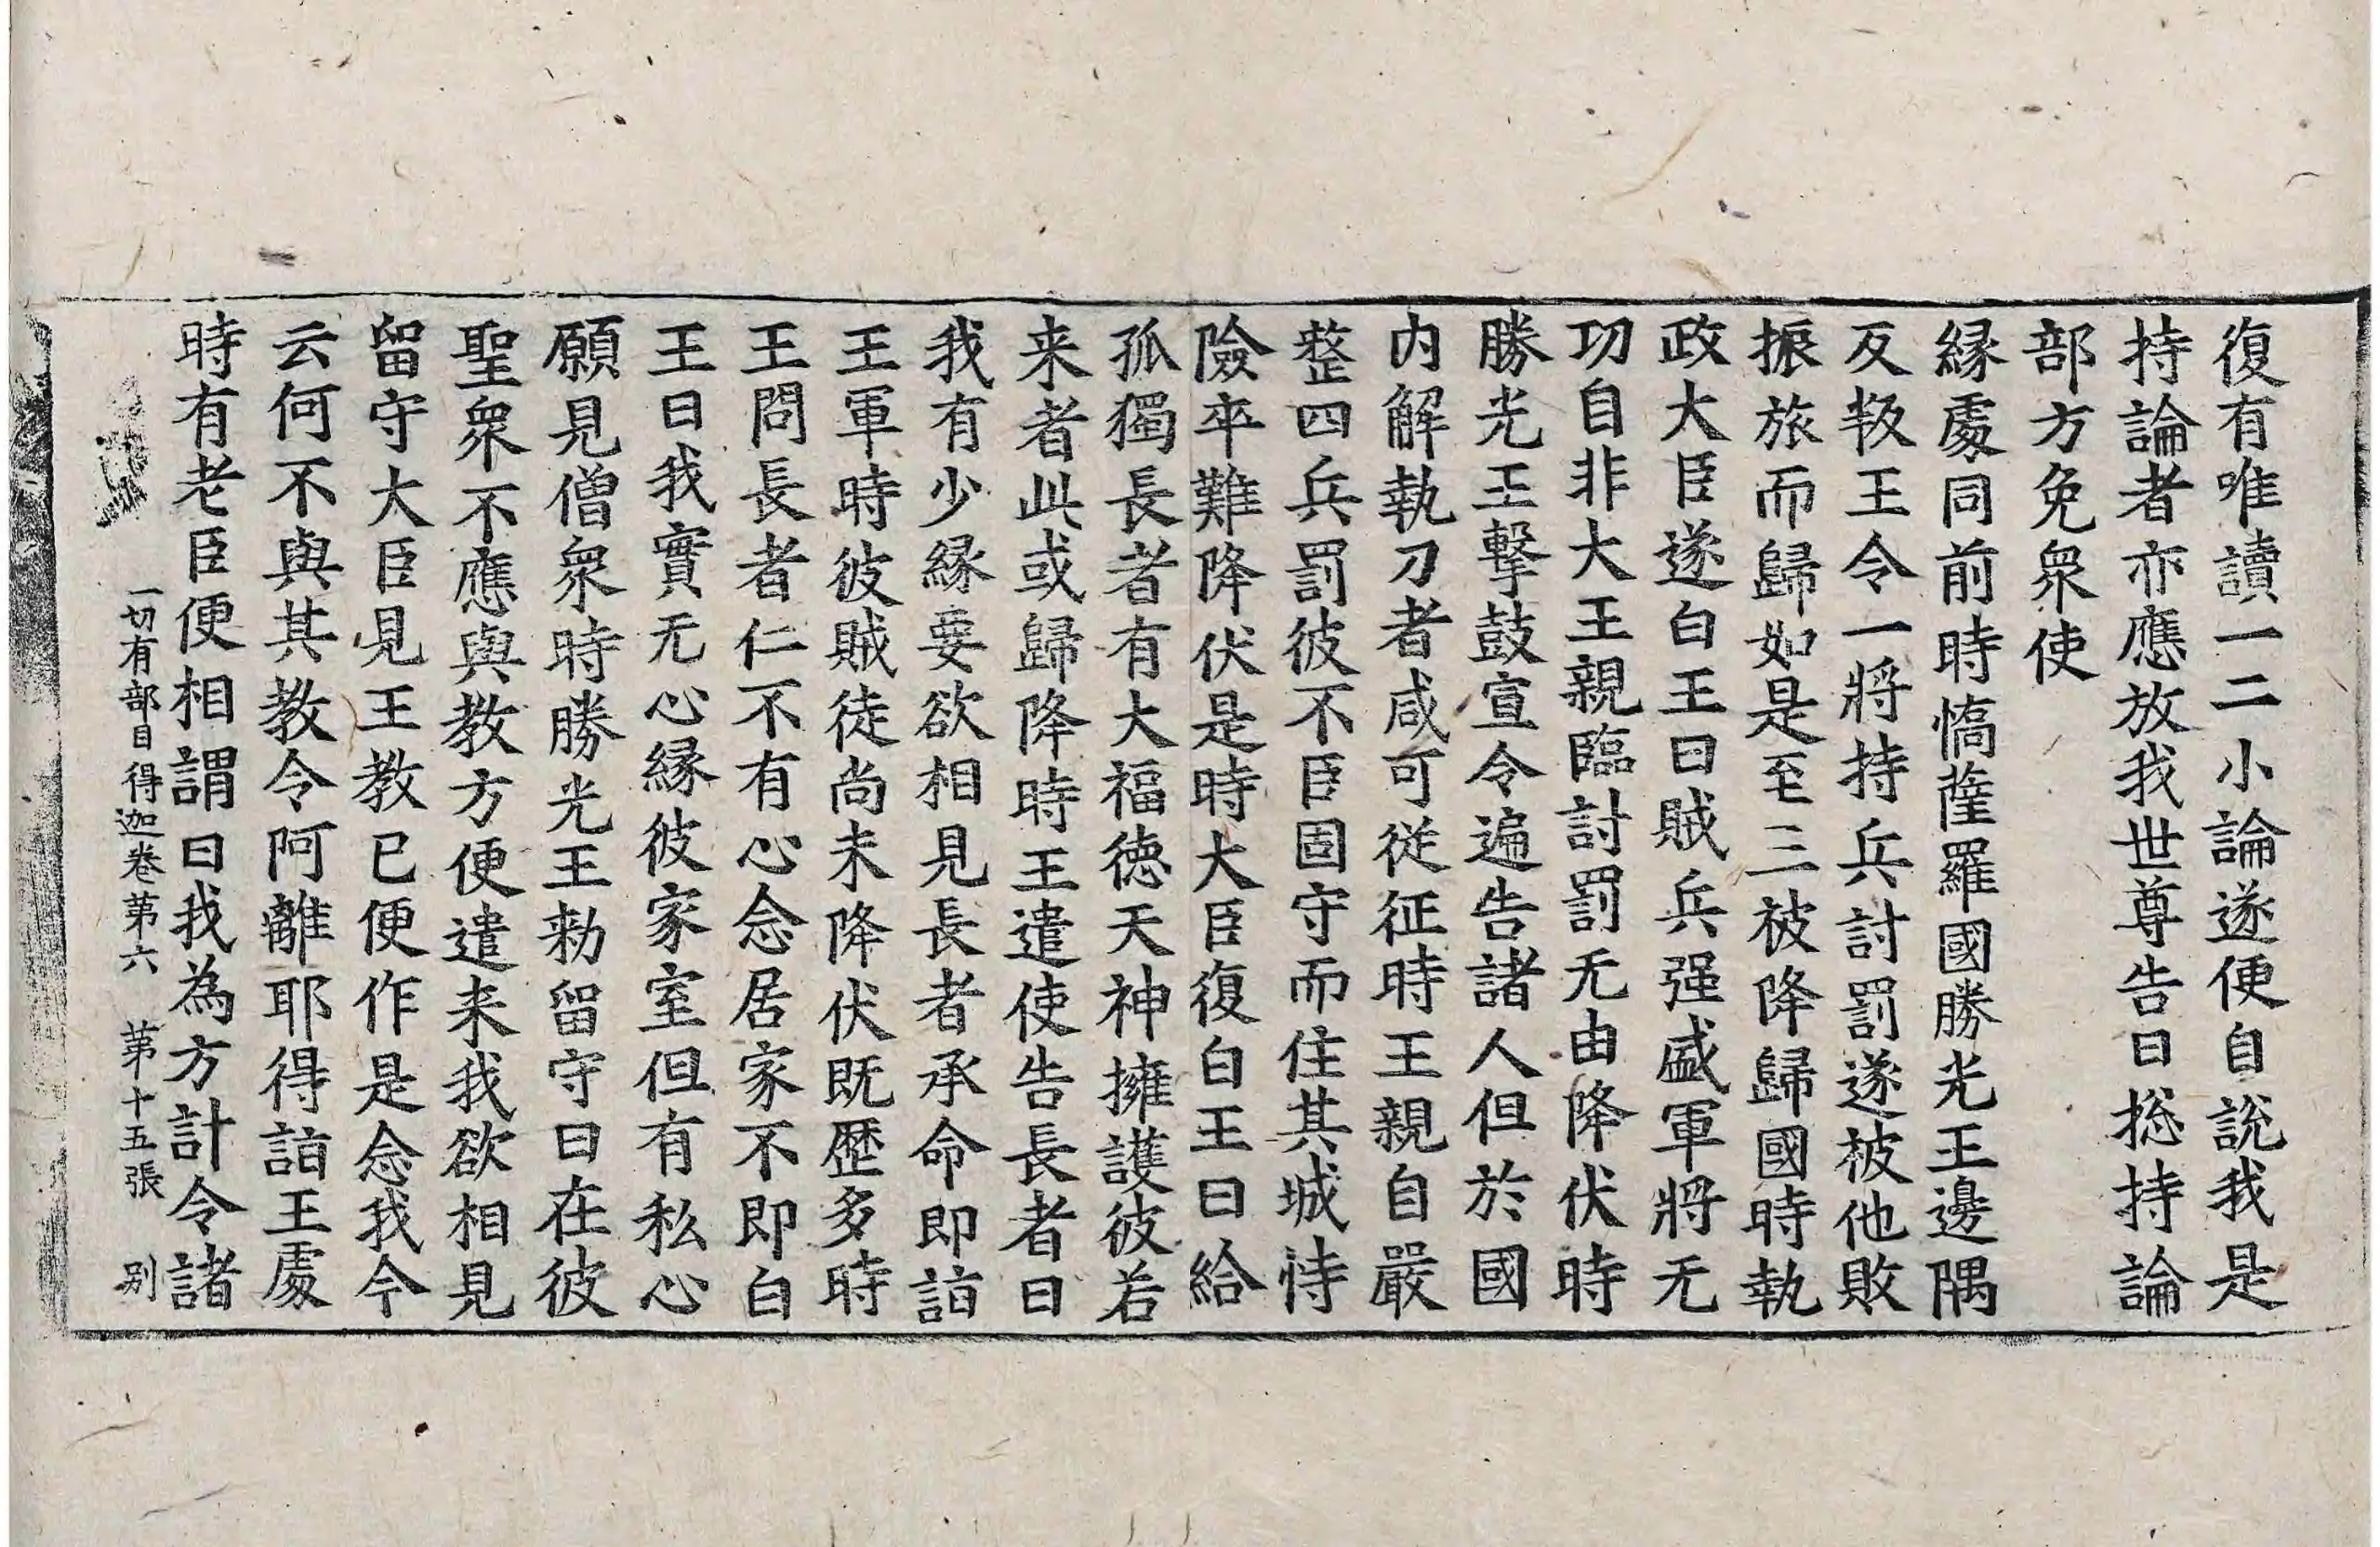 復有唯讀一二小論遂便自說我是
持論者亦應放我世尊告曰揔持論
部方免衆使
縁處同前時憍薩羅國勝光王邊隅
反叛王令一將持兵討罰遂被他敗
振旅而歸如是至三被降歸國時執
政大臣遂白王曰賊兵强盛軍將无
功自非大王親臨討罰无由降伏時
勝光王擊鼓宣令遍告諸人但於國
内解執刀者咸可從征時王親自嚴
整四兵罰彼不臣固守而住其城恃
險卒難降伏是時大臣復白王曰給
孤獨長者有大福德天神擁護彼若
来者此或歸降時王遣使告長者曰
我有少縁要欲相見長者承命即詣
王軍時彼賊徒尚未降伏既歷多時
王問長者仁不有心念居家不即白
王曰我實无心縁彼家室但有私心
願見僧衆時勝光王勑留守曰在彼
聖衆不應與教方便遣来我欲相見
留守大臣見王教已便作是念我今
云何不與其教令阿離耶得詣王處
時有老臣便相謂曰我為方計令諸
一切有部目得迦卷第六 第十五張 别